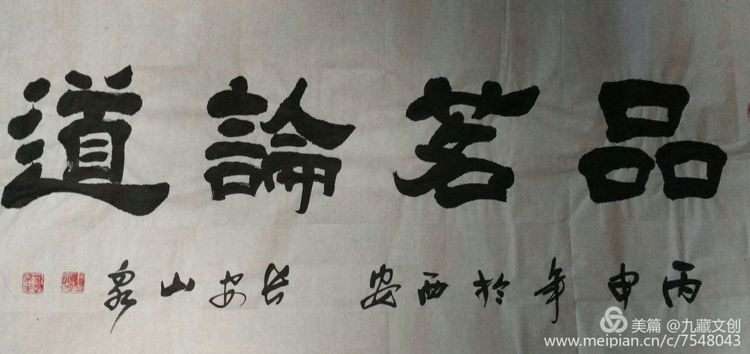 品茗論道
丙申年於西安 长安山泉
美篇 @九藏文创
www.meipian.cn/c/7548043